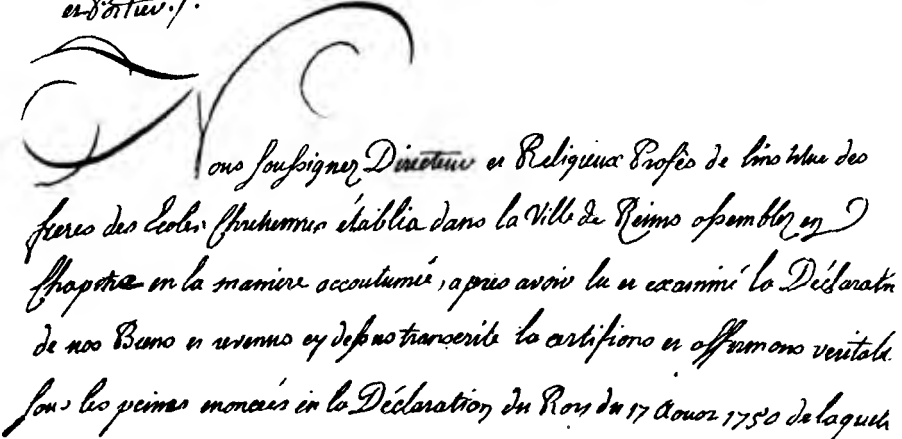 et Portier./.
Nous soussignez Directeur et Religieux Profès de l'institut des
freres des Ecoles Chretiennes établis dans la Ville de Reims assemblez en
Chapitre en la maniere accoutumée, apres avoir lu et examiné la Déclaratn
de nos Biens et revenus cy dessus transcritte la certifions et affirmons veritabl.
sous les peines enoncées en la Déclaration du Roy du 17 Aoust 1750 de laquelle